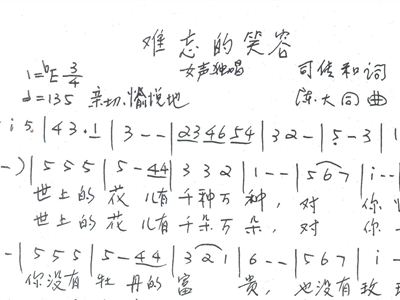 难忘的笑容
1=♭E 3/4 女声独唱 司传和词
♩=135 亲切.愉悦地 陈大同曲
i 5 | 4 3 . 1 | 3 - - | 2 3 4 6 5 4 | 3 2 - | 5 - 3 | 1
- ) | 5 5 5 | 5 - 4 4 | 3 3 2 | 1 - - | 5 6 7 | i - -
世上的花儿有千种万种，对 你
世上的花儿有千朵万朵，对 你
- | 5 5 5 | 5 - 4 4 | 3 2 1 | 6 - - | 5 6 7 | i -
你没有牡丹的富 贵，也没有玫